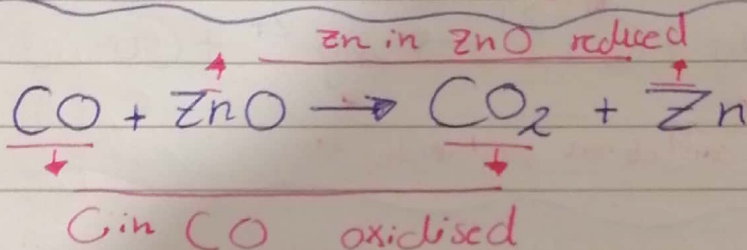 Zn in ZnO reduced
CO + ZnO → CO₂ + Zn
C in CO oxidised